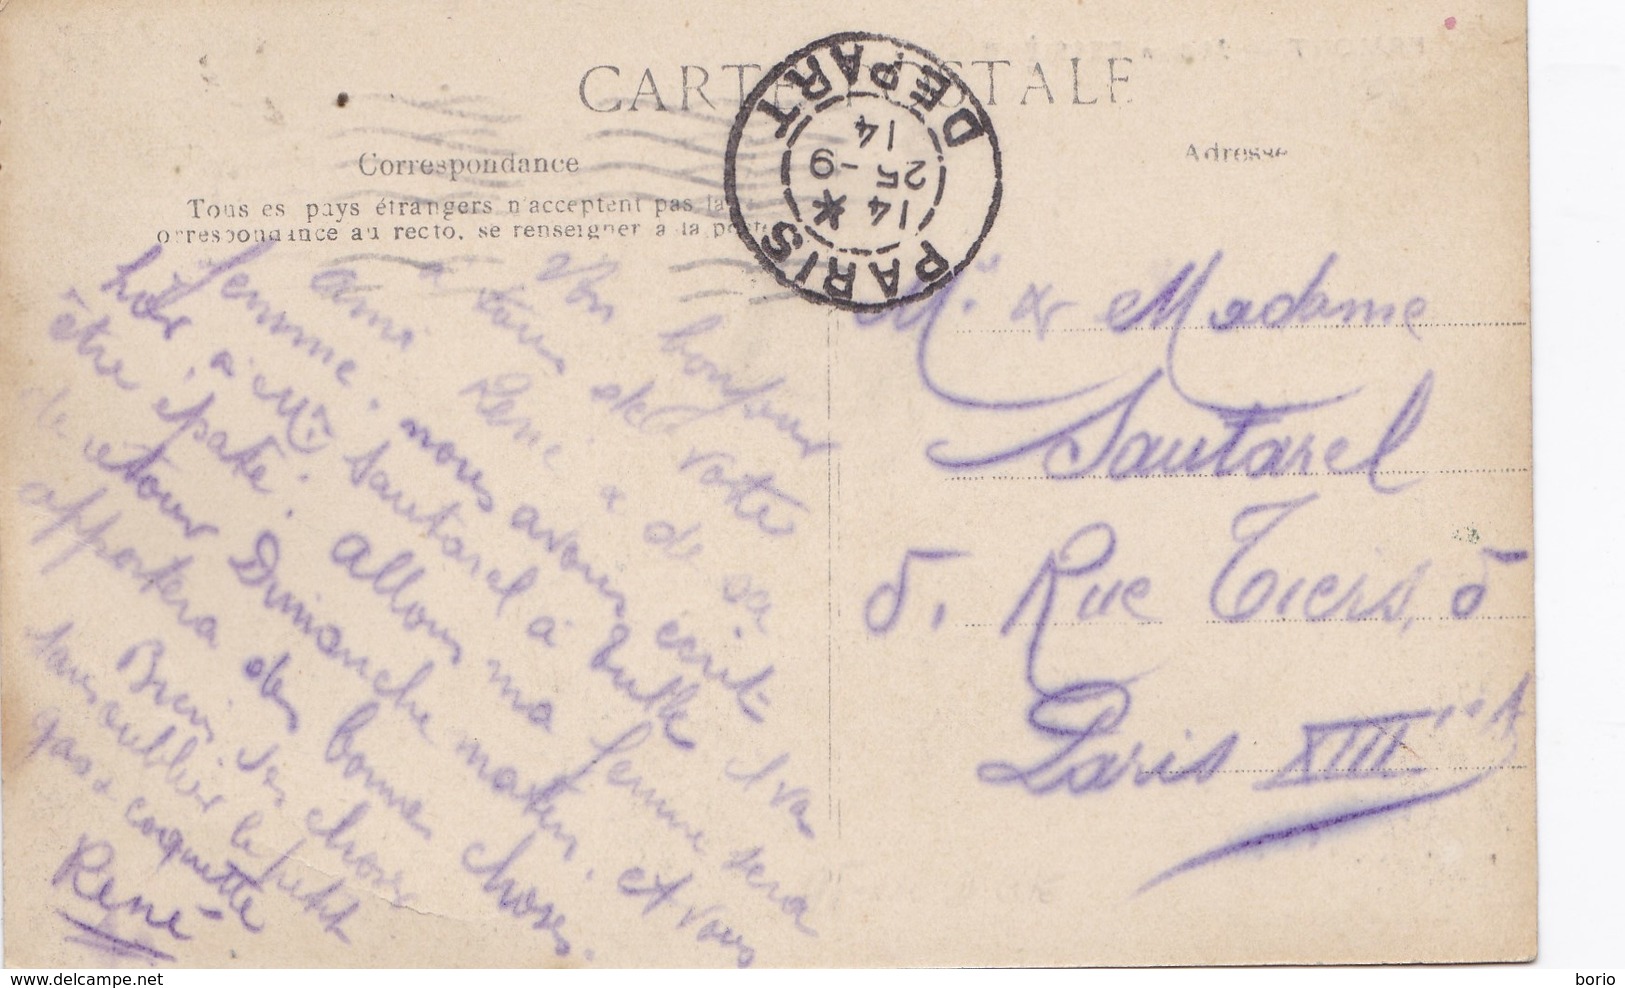 CARTE POSTALE
Correspondance
Adresse
Tous es pays étrangers n'acceptent pas la
orrespondance au recto, se renseigner a la poste
PARIS
14 *
25 -9
14
DEPART
Un bonjour
à tous de votre
ami René & de sa
femme. nous avons écrit
hier à Mr Sautarel à Tulle. il va
être épaté. Allons ma femme sera
de retour Dimanche matin. et vous
apportera des bonnes choses.
Bien des choses
sans oublier le petit
gas & coquette
René
Mr & Madame
Sautarel
5, Rue Tiers, 5
Paris XIII
delcampe.net
borio